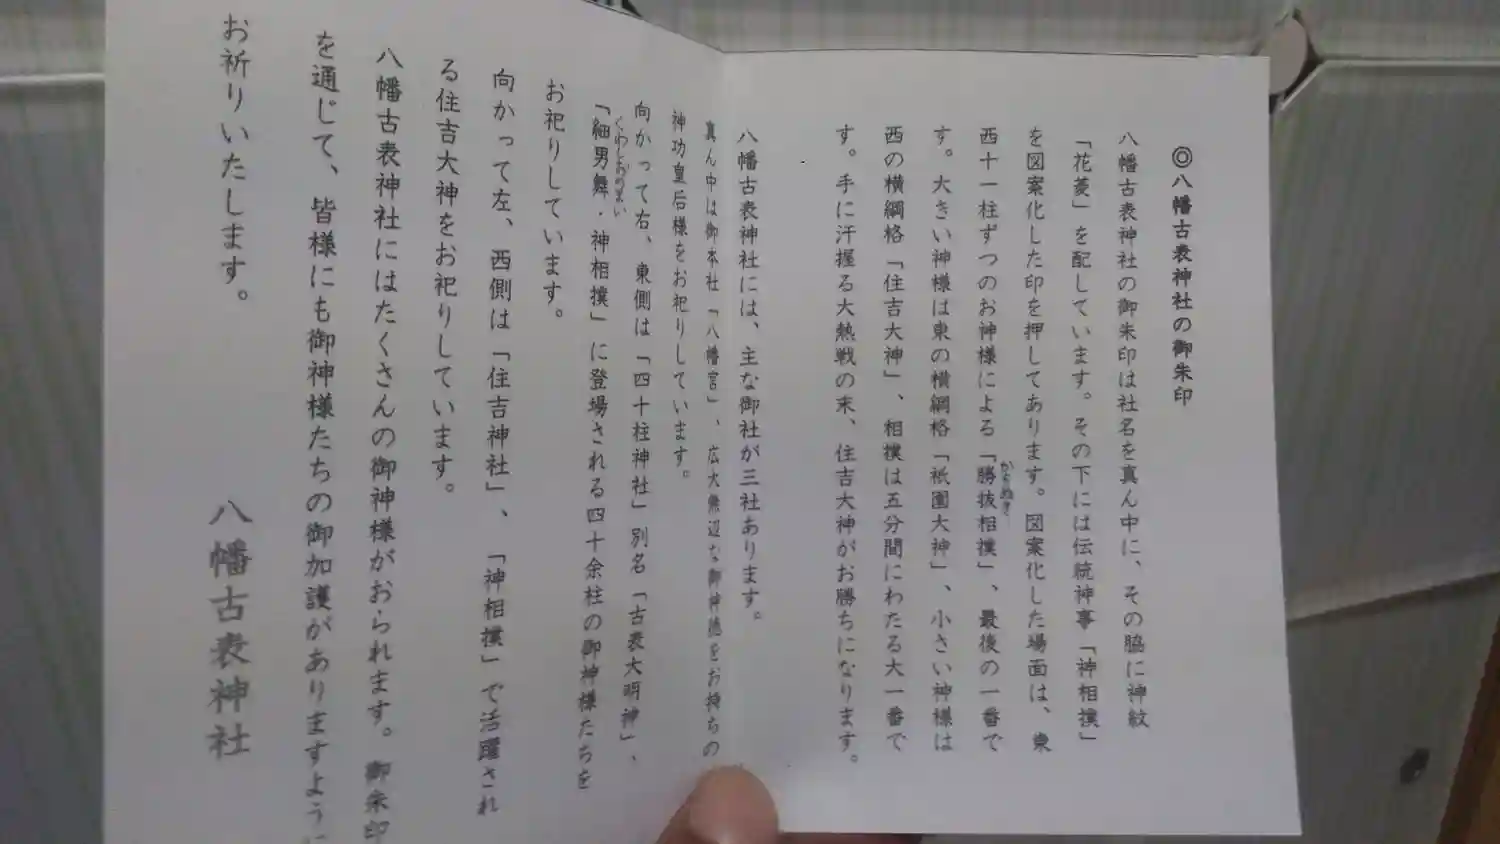 ◎八幡古表神社の御朱印
八幡古表神社の御朱印は社名を真ん中に、その脇に神紋
「花菱」を配しています。その下には伝統神事「神相撲」
を図案化した印を押してあります。図案化した場面は、東
西十一柱ずつのお神様による「勝抜相撲」、最後の一番で
かちぬき
す。大きい神様は東の横綱格「祇園大神」、小さい神様は
西の横綱格「住吉大神」、相撲は五分間にわたる大一番で
す。手に汗握る大熱戦の末、住吉大神がお勝ちになります。
八幡古表神社には、主な御社が三社あります。
真ん中は御本社「八幡宮」、広大無辺な御神徳をお持ちの
神功皇后様をお祀りしています。
向かって右、東側は「四十柱神社」別名「古表大明神」、
「細男舞・神相撲」に登場される四十余柱の御神様たちを
くわしおのまい
お祀りしています。
向かって左、西側は「住吉神社」、「神相撲」で活躍され
る住吉大神をお祀りしています。
八幡古表神社にはたくさんの御神様がおられます。御朱印
を通じて、皆様にも御神様たちの御加護がありますように
お祈りいたします。
八幡古表神社